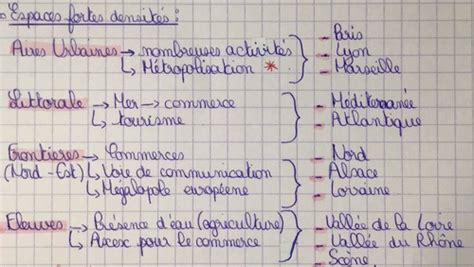 Espaces fortes densités :
Aires Urbaines → nombreuses activités
↳ Métropolisation *
- Paris
- Lyon
- Marseille
Littorale → Mer → commerce
↳ tourisme
- Méditeranée
- Atlantique
Frontieres → Commerces
(Nord-Est) ↳ Voie de communication
↳ Mégalopole européene
- Nord
- Alsace
- Lorraine
Fleuves → Présence d'eau (agriculture)
↳ Axcex pour le commerce
- Vallée de la Loire
- Vallée du Rhône
- Scène